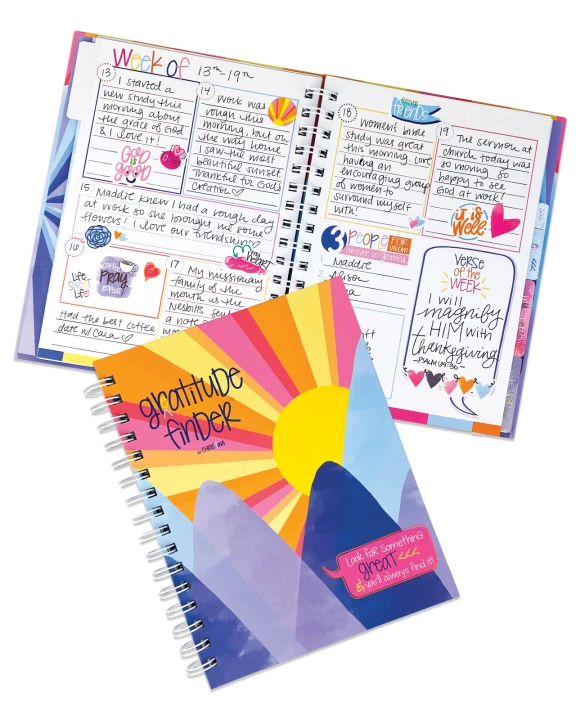 Week of 13th-19th
13
I started a
new study this
morning about
the grace of God
& I love it!
GOD
is
GOOD
14
Work was
rough this
morning, but on
the way home
I saw the most
beautiful sunset
Thankful for God's
creation
15
Maddie knew I had a rough day
at work so she brought me some
flowers! I love our friendship
16
Life
Life
Pray
repeat
Had the best coffee
date w/ Cara
17
My missionary
family of the
month is the
Nesbits
a note
18
from
friends
Women's bible
study was great
this morning. Love
having an
encouraging group
of women to
surround myself
with!
19
The sermon at
church today was
so moving. So
happy to see
God at work!
it is
Well
3 PEOPLE FOR WHOM
I'm ever so grateful
1 Maddie
2 Alison
VERSE
OF the
WEEK
I will
magnify
HIM with
thanksgiving
-PSALM 69:30-
gratitude
finder
Look for something
great <<<
& you'll always find it!